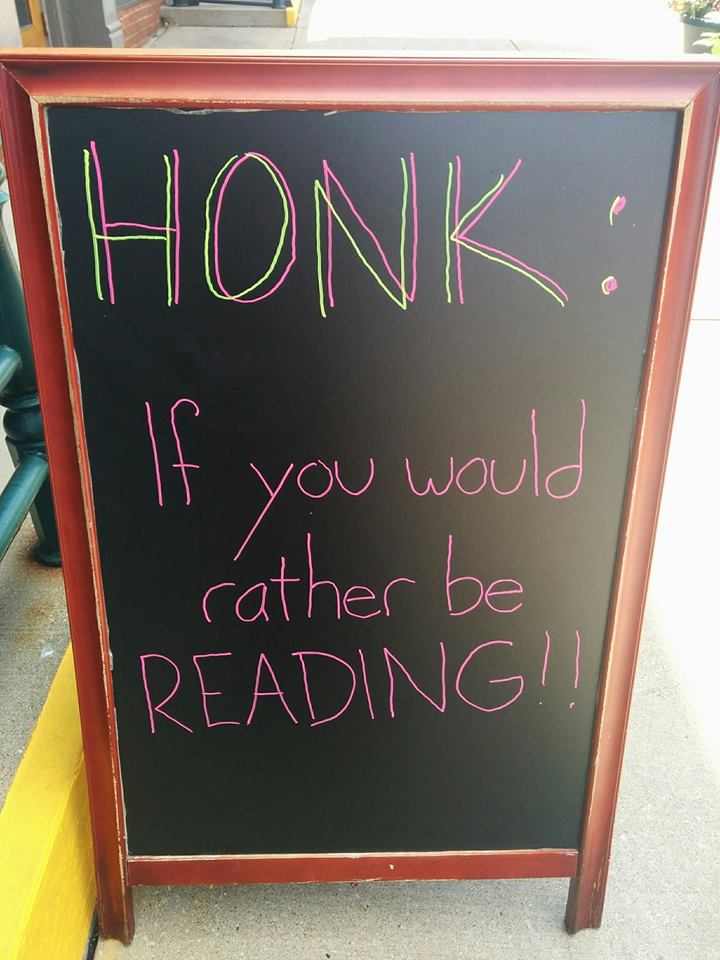 HONK:
If you would
rather be
READING!!